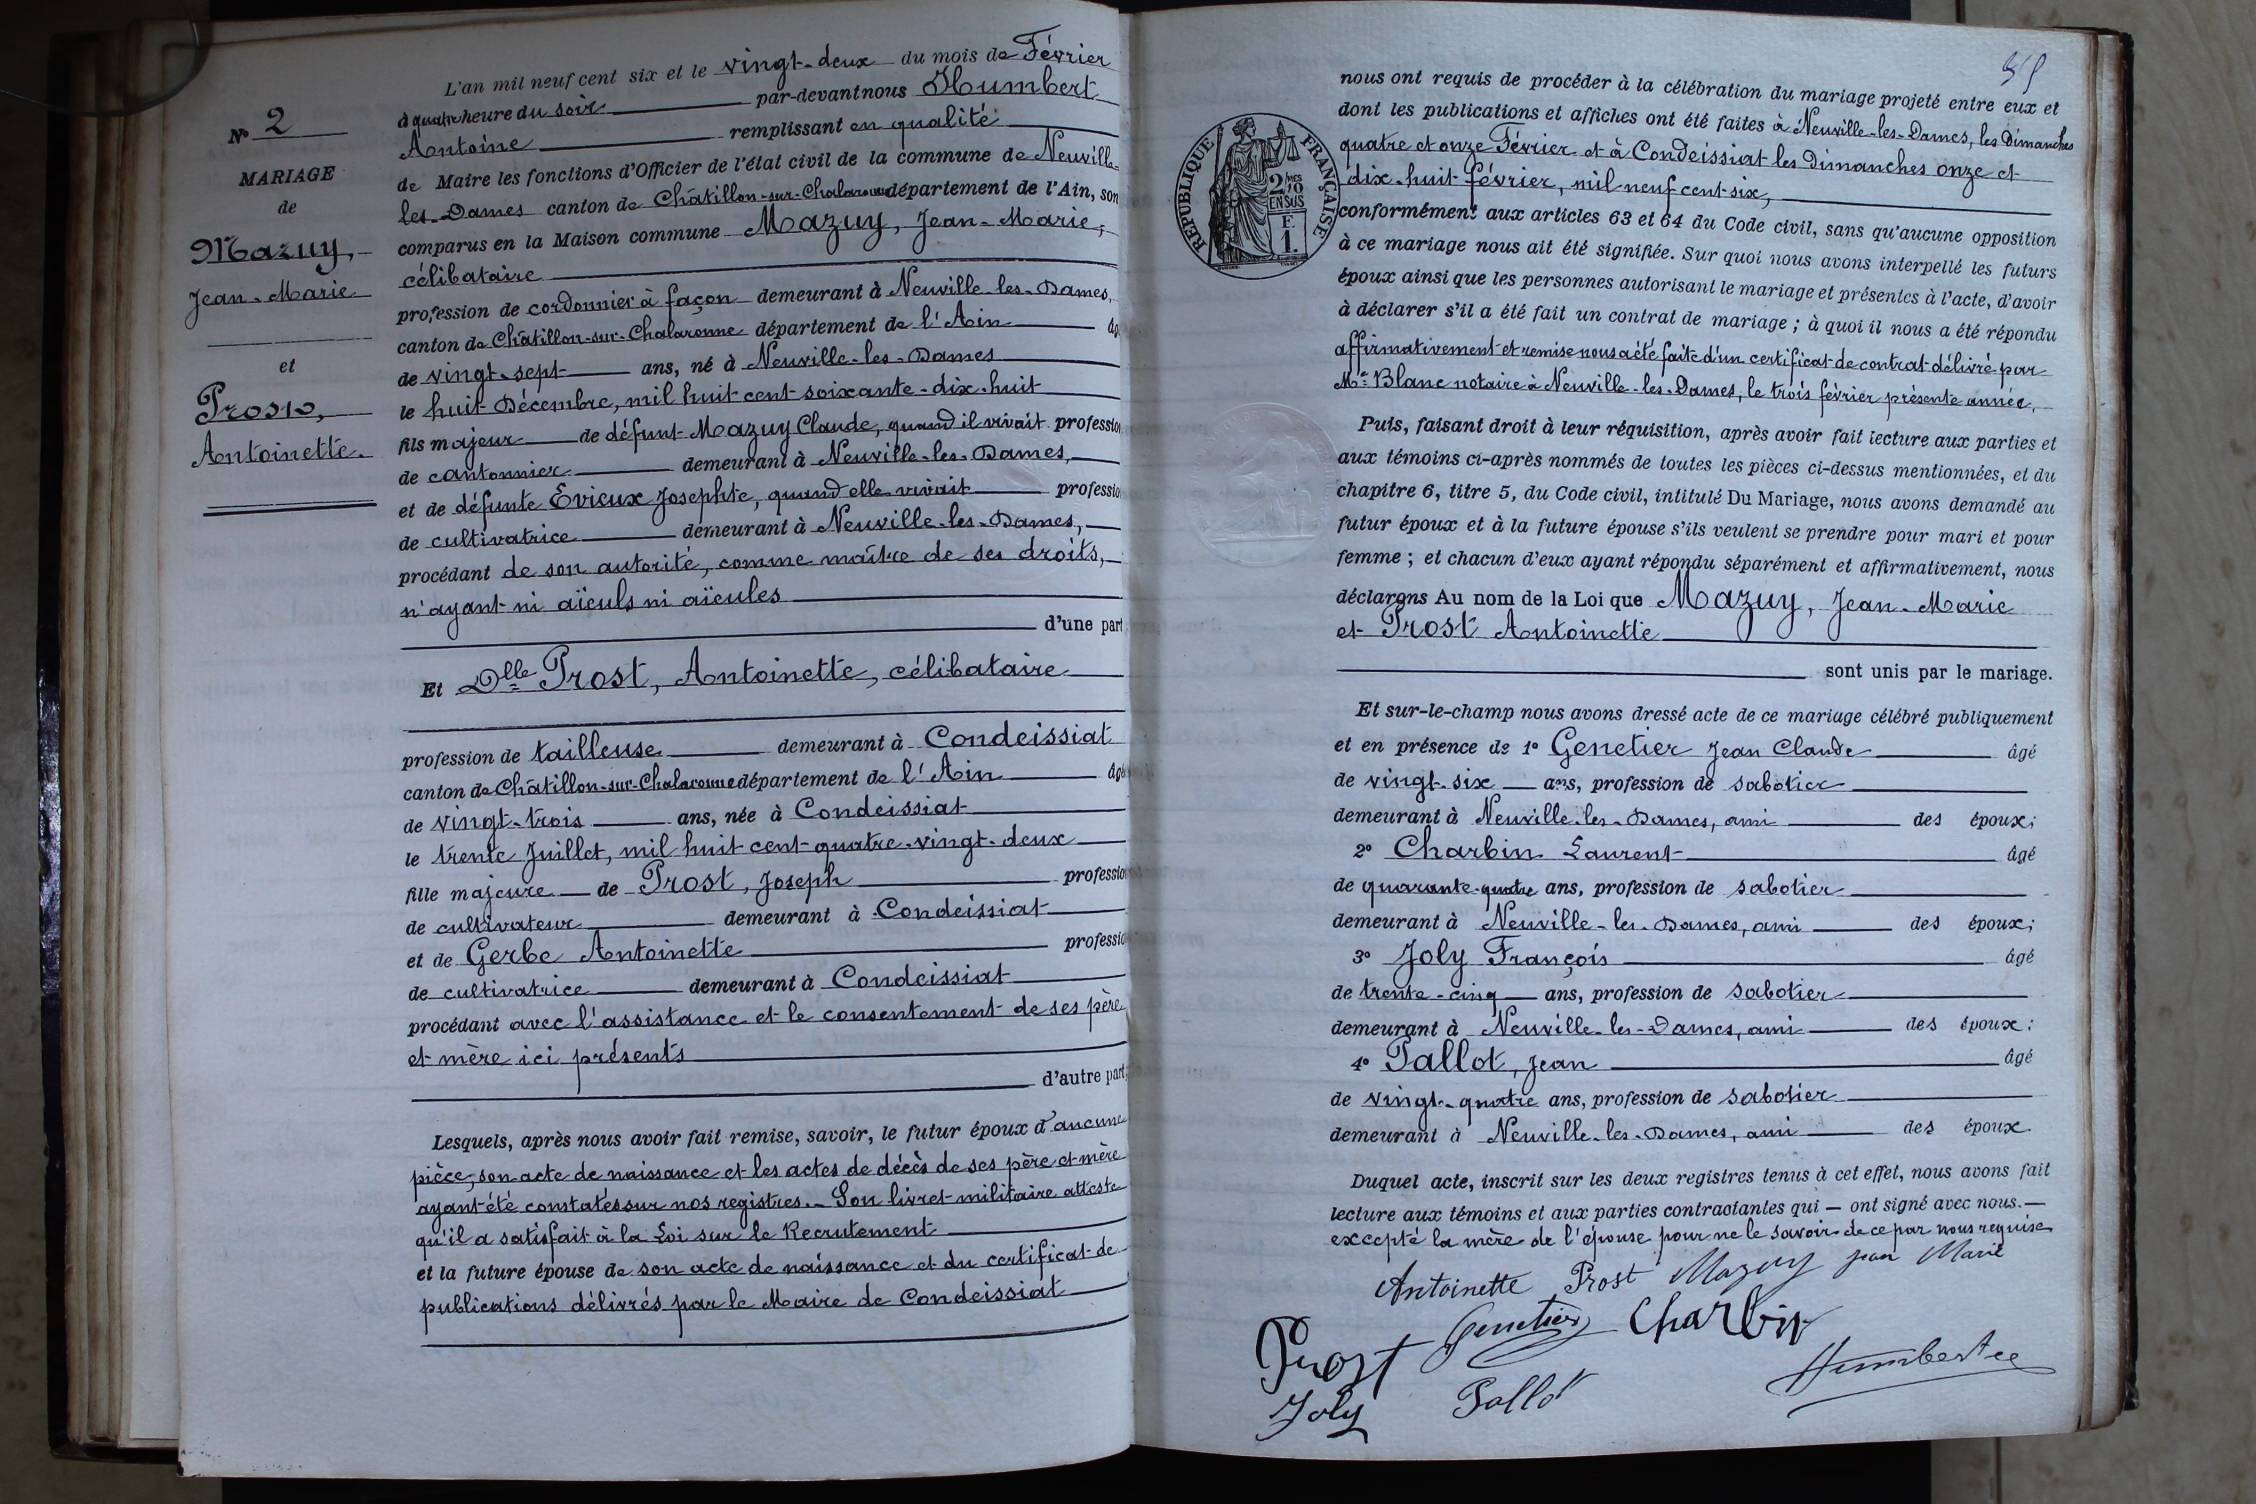 L'an mil neuf cent six et le vingt-deux du mois de Février
à quatre heure du soir par-devant nous Humbert
Antoine remplissant en qualité
de Maire les fonctions d'Officier de l'état civil de la commune de Neuville-
les-Dames canton de Châtillon-sur-Chalaronne département de l'Ain, son
comparus en la Maison commune Mazuy, Jean-Marie,
célibataire
profession de cordonnier à façon demeurant à Neuville-les-Dames,
canton de Châtillon-sur-Chalaronne département de l'Ain âg
de vingt-sept ans, né à Neuville-les-Dames
le huit Décembre, mil huit cent soixante-dix-huit
fils majeur de défunt Mazuy Claude, quand il vivait professio
de cantonnier demeurant à Neuville-les-Dames,
et de défunte Evieux Josephte, quand elle vivait professio
de cultivatrice demeurant à Neuville-les-Dames,
procédant de son autorité, comme maître de ses droits,
n'ayant ni aïeuls ni aïeules
d'une part
Et Dlle Prost, Antoinette, célibataire
profession de tailleuse demeurant à Condeissiat
canton de Châtillon-sur-Chalaronne département de l'Ain âgé
de vingt-trois ans, née à Condeissiat
le trente Juillet, mil huit cent quatre-vingt-deux
fille majeure de Prost, Joseph professio
de cultivateur demeurant à Condeissiat
et de Gerbe Antoinette professio
de cultivatrice demeurant à Condeissiat
procédant avec l'assistance et le consentement de ses père
et mère ici présents
d'autre part,
Lesquels, après nous avoir fait remise, savoir, le futur époux d'aucune
pièce, son acte de naissance et les actes de décès de ses père et mère
ayant été constatés sur nos registres. – Son livret militaire atteste
qu'il a satisfait à la Loi sur le Recrutement
et la future épouse de son acte de naissance et du certificat de
publications délivrés par le Maire de Condeissiat
No 2
MARIAGE
de
Mazuy,
Jean-Marie
et
Prost,
Antoinette.
nous ont requis de procéder à la célébration du mariage projeté entre eux et
dont les publications et affiches ont été faites à Neuville-les-Dames, les Dimanches
quatre et onze Février et à Condeissiat les Dimanches onze et
dix-huit février, mil neuf cent six,
conformément aux articles 63 et 64 du Code civil, sans qu'aucune opposition
à ce mariage nous ait été signifiée. Sur quoi nous avons interpellé les futurs
époux ainsi que les personnes autorisant le mariage et présentes à l'acte, d'avoir
à déclarer s'il a été fait un contrat de mariage ; à quoi il nous a été répondu
affirmativement et remise nous a été faite d'un certificat de contrat délivré par
Me Blanc notaire à Neuville-les-Dames, le trois février présente année,
Puis, faisant droit à leur réquisition, après avoir fait lecture aux parties et
aux témoins ci-après nommés de toutes les pièces ci-dessus mentionnées, et du
chapitre 6, titre 5, du Code civil, intitulé Du Mariage, nous avons demandé au
futur époux et à la future épouse s'ils veulent se prendre pour mari et pour
femme ; et chacun d'eux ayant répondu séparément et affirmativement, nous
déclarons Au nom de la Loi que Mazuy, Jean-Marie
et Prost Antoinette
sont unis par le mariage.
Et sur-le-champ nous avons dressé acte de ce mariage célébré publiquement
et en présence de 1° Genetier Jean Claude âgé
de vingt-six ans, profession de sabotier
demeurant à Neuville-les-Dames, ami des époux;
2° Charbin Laurent âgé
de quarante-quatre ans, profession de sabotier
demeurant à Neuville-les-Dames, ami des époux;
3° Joly François âgé
de trente-cinq ans, profession de sabotier
demeurant à Neuville-les-Dames, ami des époux;
4° Pallot, Jean âgé
de vingt-quatre ans, profession de sabotier
demeurant à Neuville-les-Dames, ami des époux.
Duquel acte, inscrit sur les deux registres tenus à cet effet, nous avons fait
lecture aux témoins et aux parties contractantes qui — ont signé avec nous. —
excepté la mère de l'épouse pour ne le savoir de ce par nous requise
Antoinette Prost Mazuy jean Marie
Prost Genetier Charbin
Joly Pallot Humbert
RÉPUBLIQUE FRANÇAISE
2 MES
10
EN SUS
E
1.